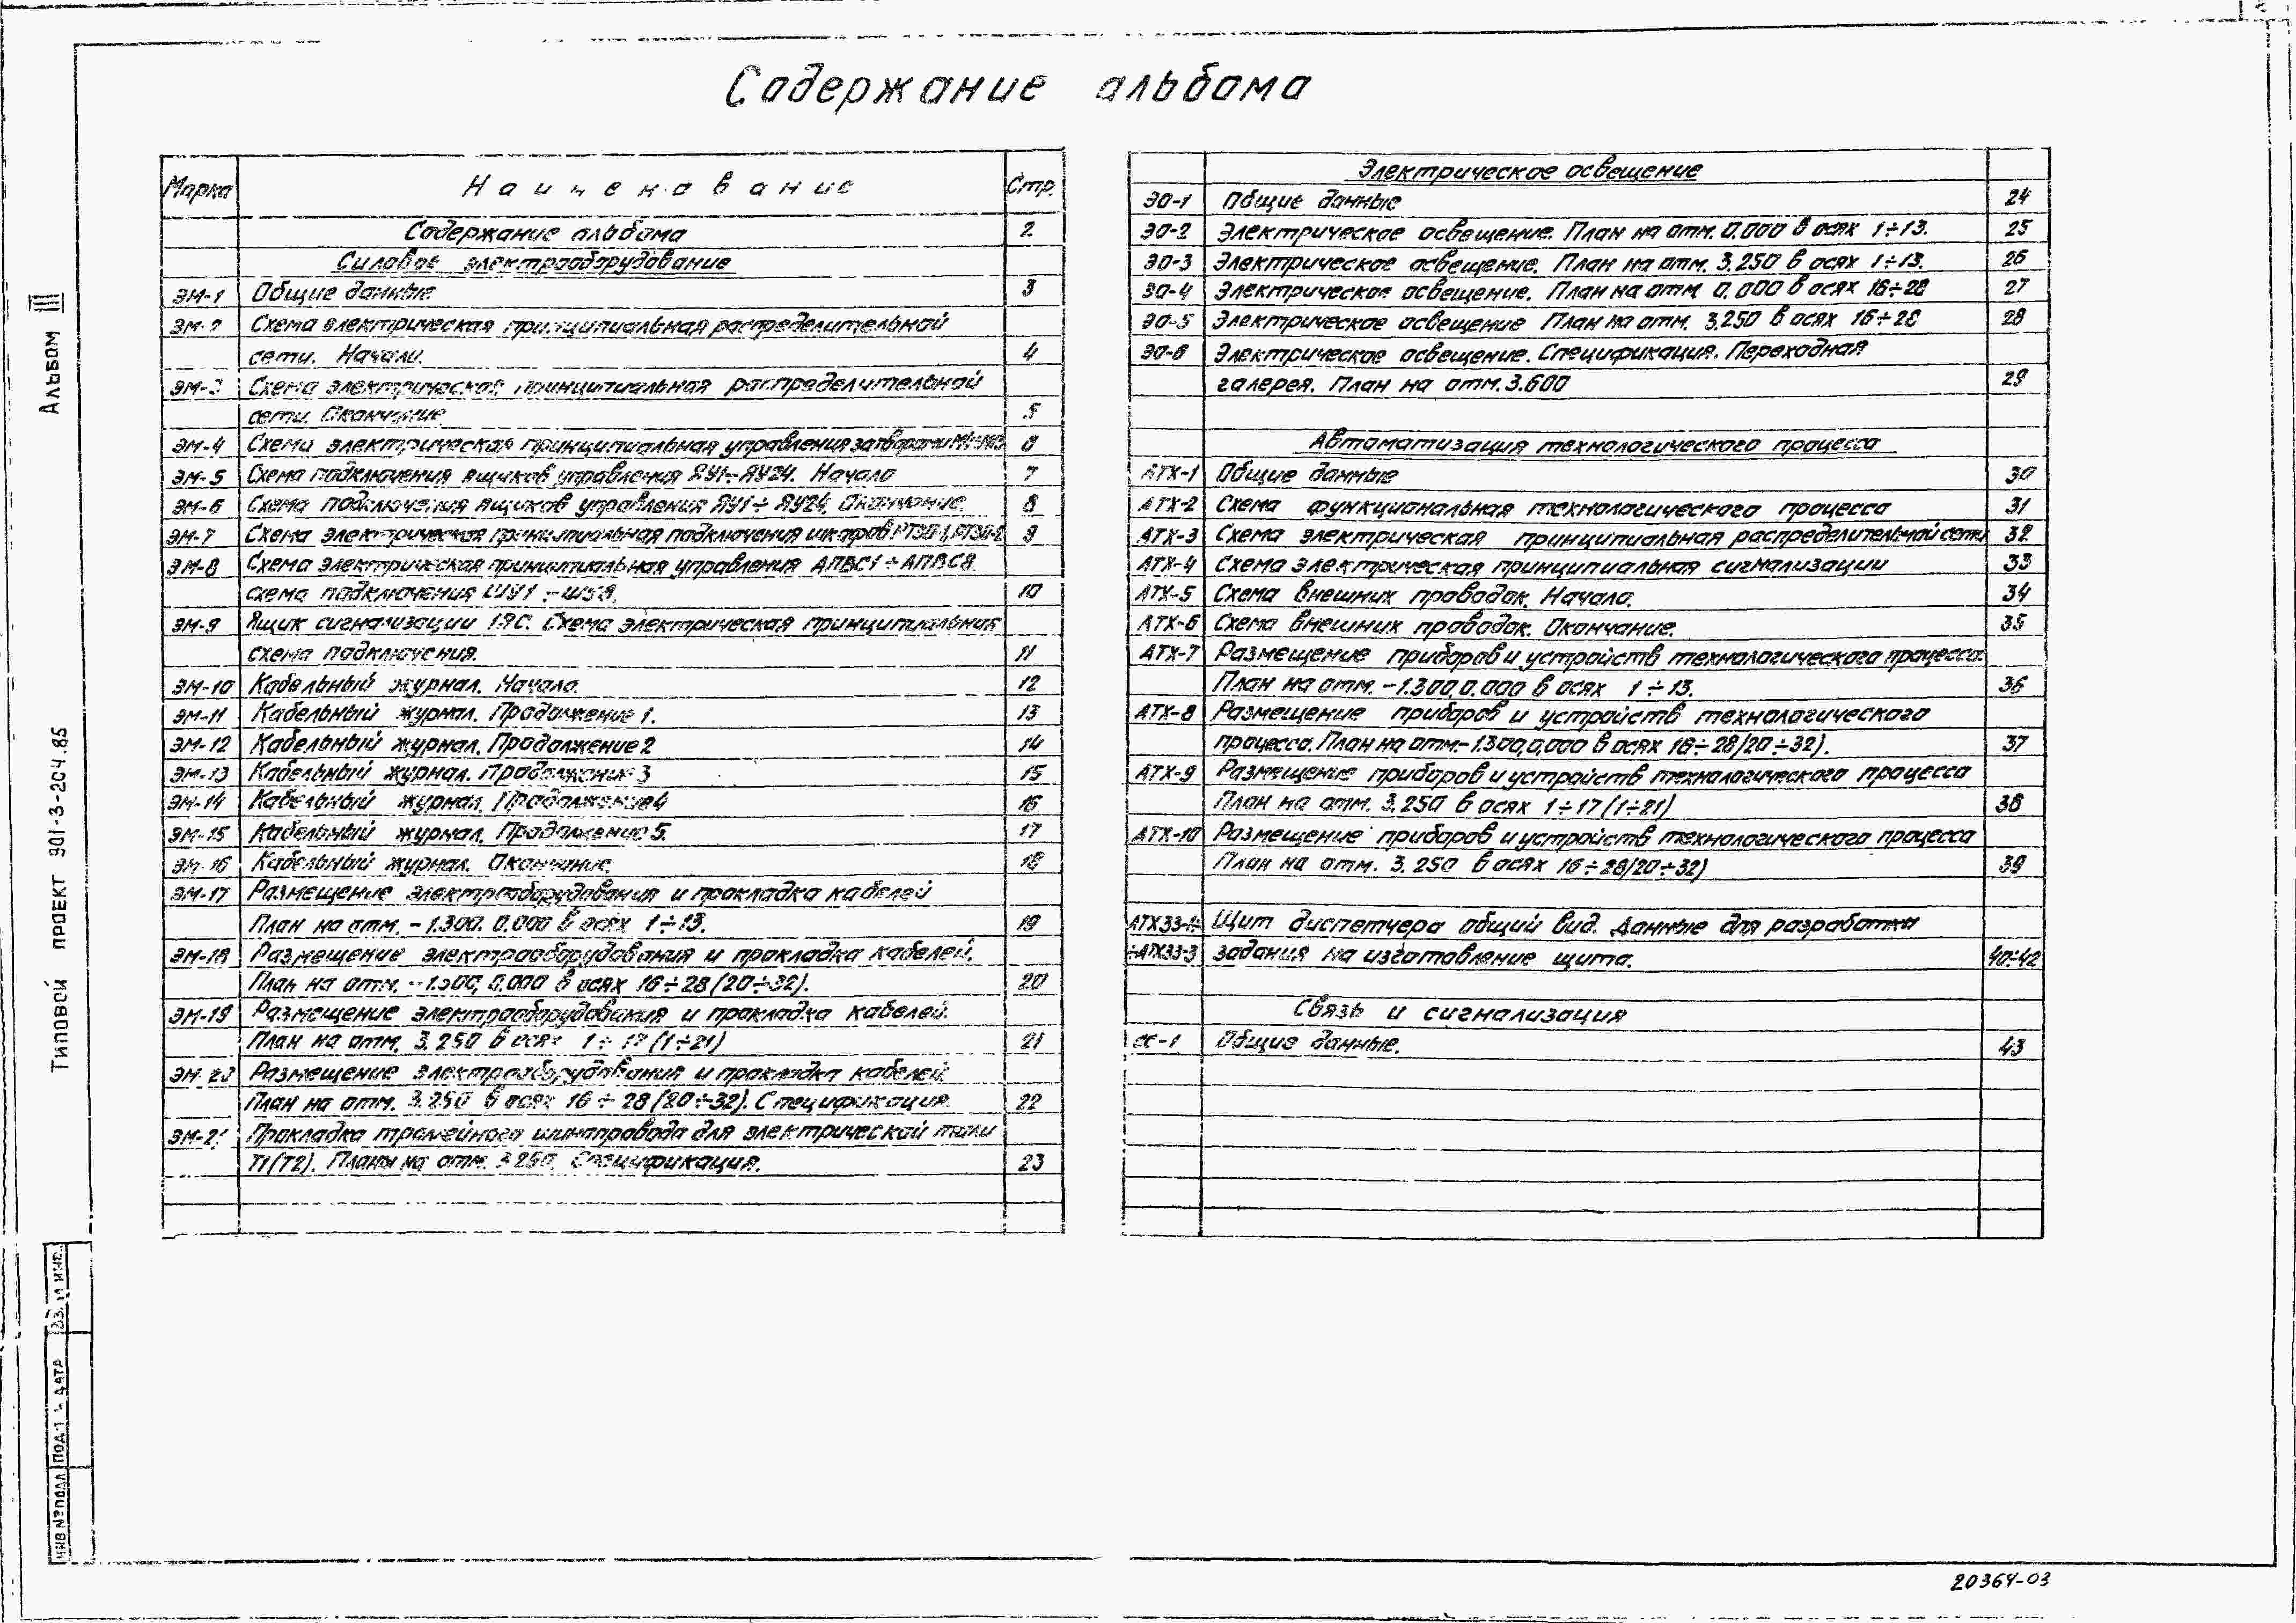 2
Содержание альбома
Альбом III
Типовой проект 901-3-204.85
Марка Наименование Стр.
Содержание альбома 2
Силовое электрооборудование
ЭМ-1 Общие данные 3
ЭМ-2 Схема электрическая принципиальная распределительной
сети. Начало. 4
ЭМ-3 Схема электрическая принципиальная распределительной
сети. Окончание. 5
ЭМ-4 Схема электрическая принципиальная управления затворами 6
ЭМ-5 Схема подключения ящиков управления ЯУ1÷ЯУ24. Начало 7
ЭМ-6 Схема подключения ящиков управления ЯУ1÷ЯУ24. Окончание 8
ЭМ-7 Схема электрическая принципиальная подключения шкафов РТЗО-1, РТЗО-2 9
ЭМ-8 Схема электрическая принципиальная управления АПВС1÷АПВС8
схема подключения 10
ЭМ-9 Ящик сигнализации 1ЯС. Схема электрическая принципиальная
схема подключения. 11
ЭМ-10 Кабельный журнал. Начало. 12
ЭМ-11 Кабельный журнал. Продолжение 1. 13
ЭМ-12 Кабельный журнал. Продолжение 2 14
ЭМ-13 Кабельный журнал. Продолжение 3 15
ЭМ-14 Кабельный журнал. Продолжение 4 16
ЭМ-15 Кабельный журнал. Продолжение 5. 17
ЭМ-16 Кабельный журнал. Окончание. 18
ЭМ-17 Размещение электрооборудования и прокладка кабелей
План на отм. -1.300. 0.000 в осях 1÷13. 19
ЭМ-18 Размещение электрооборудования и прокладка кабелей.
План на отм. -1.300, 0.000 в осях 16÷28 (20÷32). 20
ЭМ-19 Размещение электрооборудования и прокладка кабелей.
План на отм. 3.250 в осях 1÷17 (1÷21) 21
ЭМ-20 Размещение электрооборудования и прокладка кабелей.
План на отм. 3.250 в осях 16÷28 (20÷32). Спецификация. 22
ЭМ-21 Прокладка троллейного шинопровода для электрической тали
Т1(Т2). Планы на отм. 3.250. Спецификация. 23
Электрическое освещение
ЭО-1 Общие данные 24
ЭО-2 Электрическое освещение. План на отм. 0.000 в осях 1÷13. 25
ЭО-3 Электрическое освещение. План на отм. 3.250 в осях 1÷13. 26
ЭО-4 Электрическое освещение. План на отм 0.000 в осях 16÷28 27
ЭО-5 Электрическое освещение План на отм. 3.250 в осях 16÷28 28
ЭО-6 Электрическое освещение. Спецификация. Переходная
галерея. План на отм. 3.600 29
Автоматизация технологического процесса
АТХ-1 Общие данные 30
АТХ-2 Схема функциональная технологического процесса 31
АТХ-3 Схема электрическая принципиальная распределительной сети 32
АТХ-4 Схема электрическая принципиальная сигнализации 33
АТХ-5 Схема внешних проводок. Начало. 34
АТХ-6 Схема внешних проводок. Окончание. 35
АТХ-7 Размещение приборов и устройств технологического процесса.
План на отм. -1.300, 0.000 в осях 1÷13. 36
АТХ-8 Размещение приборов и устройств технологического
процесса. План на отм -1.300, 0.000 в осях 16÷28 (20÷32). 37
АТХ-9 Размещение приборов и устройств технологического процесса
План на отм. 3.250 в осях 1÷17 (1÷21) 38
АТХ-10 Размещение приборов и устройств технологического процесса
План на отм. 3.250 в осях 16÷28 (20÷32) 39
АТХ33-1÷ Щит диспетчера общий вид. Данные для разработки
÷АТХ33-3 задания на изготовление щита. 40÷42
Связь и сигнализация
СС-1 Общие данные. 43
Инв № подл
20364-03